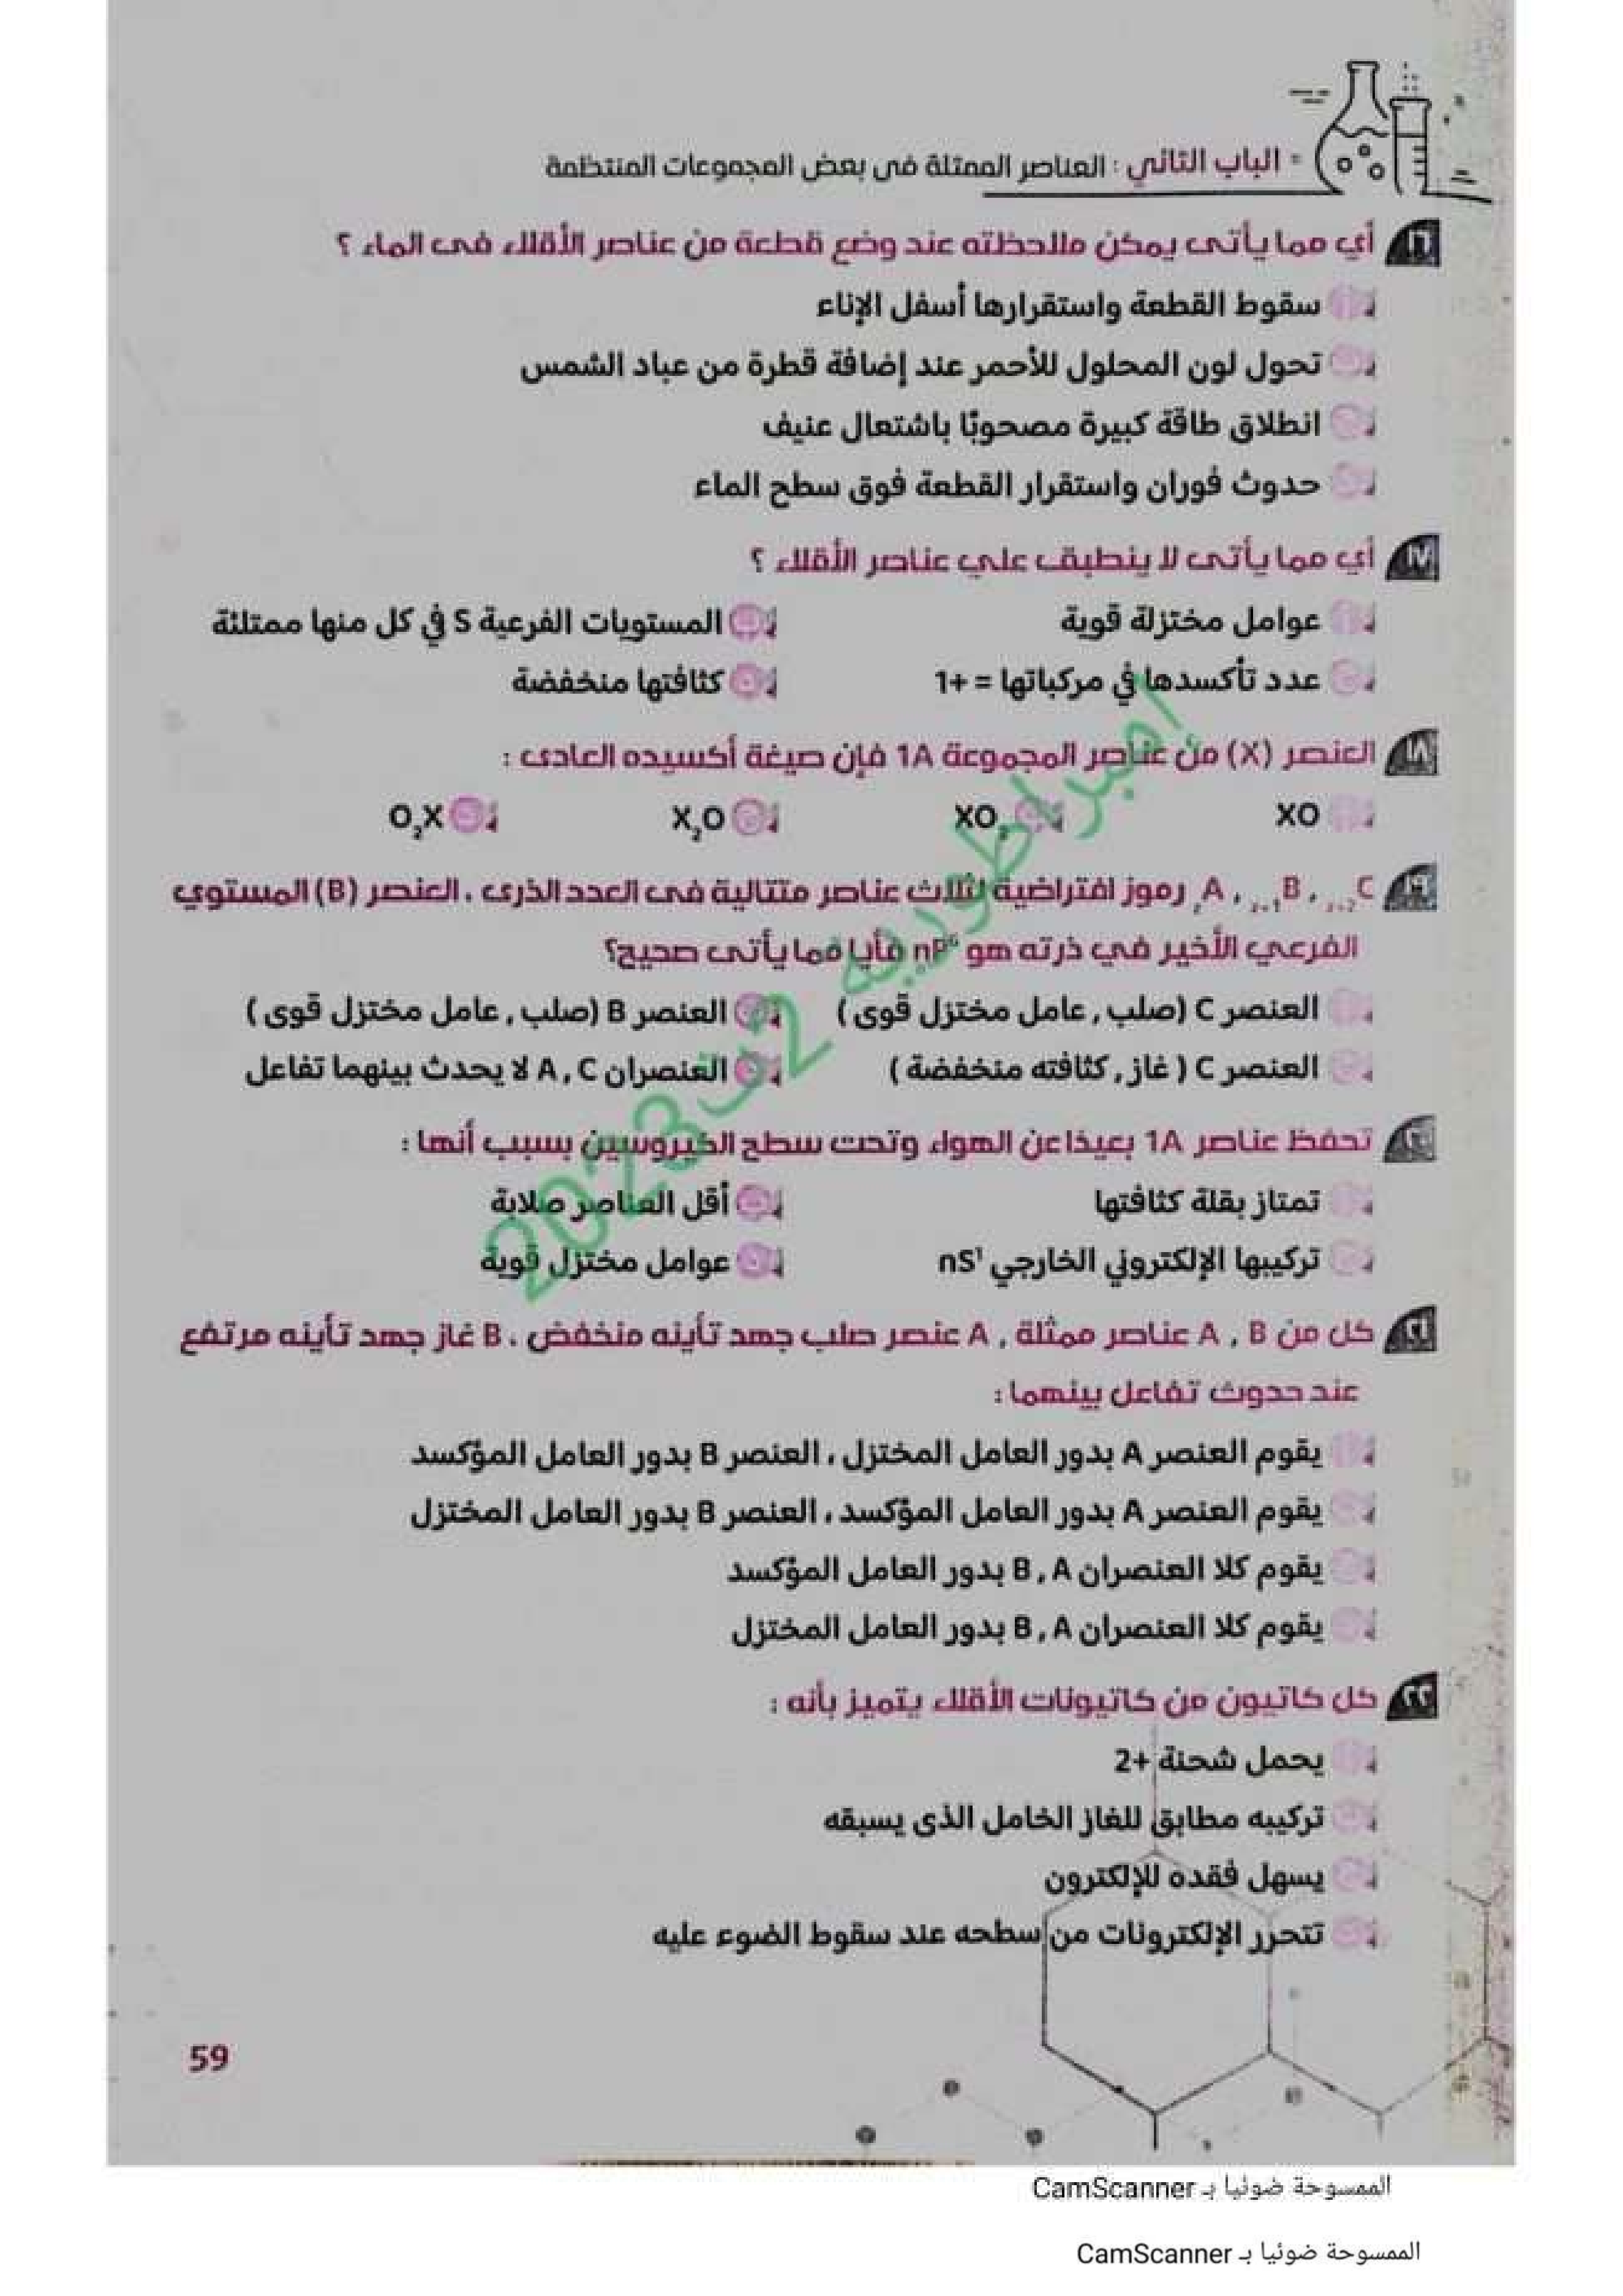 الباب الثاني : العناصر الممثلة فى بعض المجموعات المنتظمة
١٦ أي مما يأتى يمكن ملاحظته عند وضع قطعة من عناصر الأقلاء فى الماء ؟
سقوط القطعة واستقرارها أسفل الإناء
تحول لون المحلول للأحمر عند إضافة قطرة من عباد الشمس
انطلاق طاقة كبيرة مصحوبًا باشتعال عنيف
حدوث فوران واستقرار القطعة فوق سطح الماء
١٧ أي مما يأتى لا ينطبق علي عناصر الأقلاء ؟
عوامل مختزلة قوية
المستويات الفرعية S في كل منها ممتلئة
عدد تأكسدها في مركباتها = +1
كثافتها منخفضة
١٨ العنصر (X) من عناصر المجموعة 1A فإن صيغة أكسيده العادى :
XO
XO₂
X₂O
O₂X
١٩ A , B , C رموز افتراضية لثلاث عناصر متتالية فى العدد الذرى ، العنصر (B) المستوي
الفرعي الأخير في ذرته هو nP⁶ فأيا مما يأتى صحيح؟
العنصر C (صلب , عامل مختزل قوى )
العنصر B (صلب , عامل مختزل قوى )
العنصر C ( غاز , كثافته منخفضة )
العنصران A , C لا يحدث بينهما تفاعل
٢٠ تحفظ عناصر 1A بعيدًا عن الهواء وتحت سطح الكيروسين بسبب أنها :
تمتاز بقلة كثافتها
أقل العناصر صلابة
تركيبها الإلكتروني الخارجي nS¹
عوامل مختزل قوية
٢١ كل من A , B عناصر ممثلة , A عنصر صلب جهد تأينه منخفض ، B غاز جهد تأينه مرتفع
عند حدوث تفاعل بينهما :
يقوم العنصر A بدور العامل المختزل ، العنصر B بدور العامل المؤكسد
يقوم العنصر A بدور العامل المؤكسد ، العنصر B بدور العامل المختزل
يقوم كلا العنصران B , A بدور العامل المؤكسد
يقوم كلا العنصران B , A بدور العامل المختزل
٢٢ كل كاتيون من كاتيونات الأقلاء يتميز بأنه :
يحمل شحنة +2
تركيبه مطابق للغاز الخامل الذى يسبقه
يسهل فقده للإلكترون
تتحرر الإلكترونات من سطحه عند سقوط الضوء عليه
إمبراطورية 2ث 2023
59
الممسوحة ضوئيا بـ CamScanner
الممسوحة ضوئيا بـ CamScanner